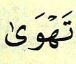 تَهْوَىٰ